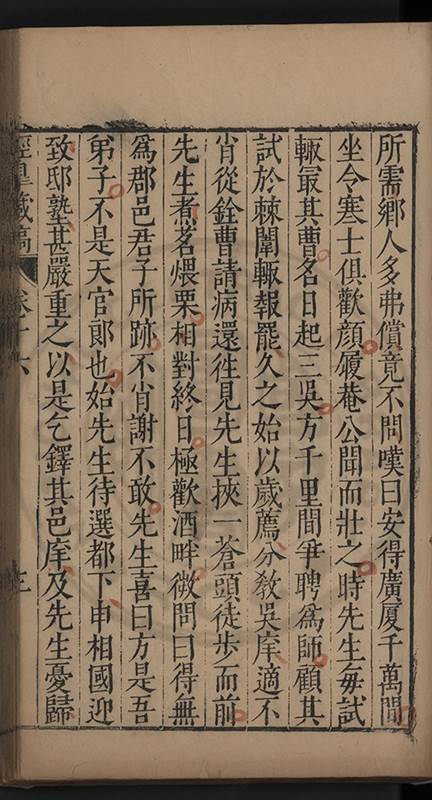 所需鄉人多弗償竟不問嘆曰安得廣厦千萬間
坐令寒士俱歡顔履菴公聞而壯之時先生每試
輙冣其曹名日起三吳方千里間爭聘爲師顧其
試於棘闈輙報罷久之始以歲薦分教吳庠適不
肖從銓曹請病還徃見先生挾一蒼頭徒步而前
先生煮茗煨栗相對終日極歡酒畔微問曰得無
爲郡邑君子所跡不肖謝不敢先生喜曰方是吾
弟子不是天官郎也始先生待選都下申相國迎
致邸塾甚嚴重之以是乞鐸其邑庠及先生憂歸
涇臯藏稿 卷十六 三